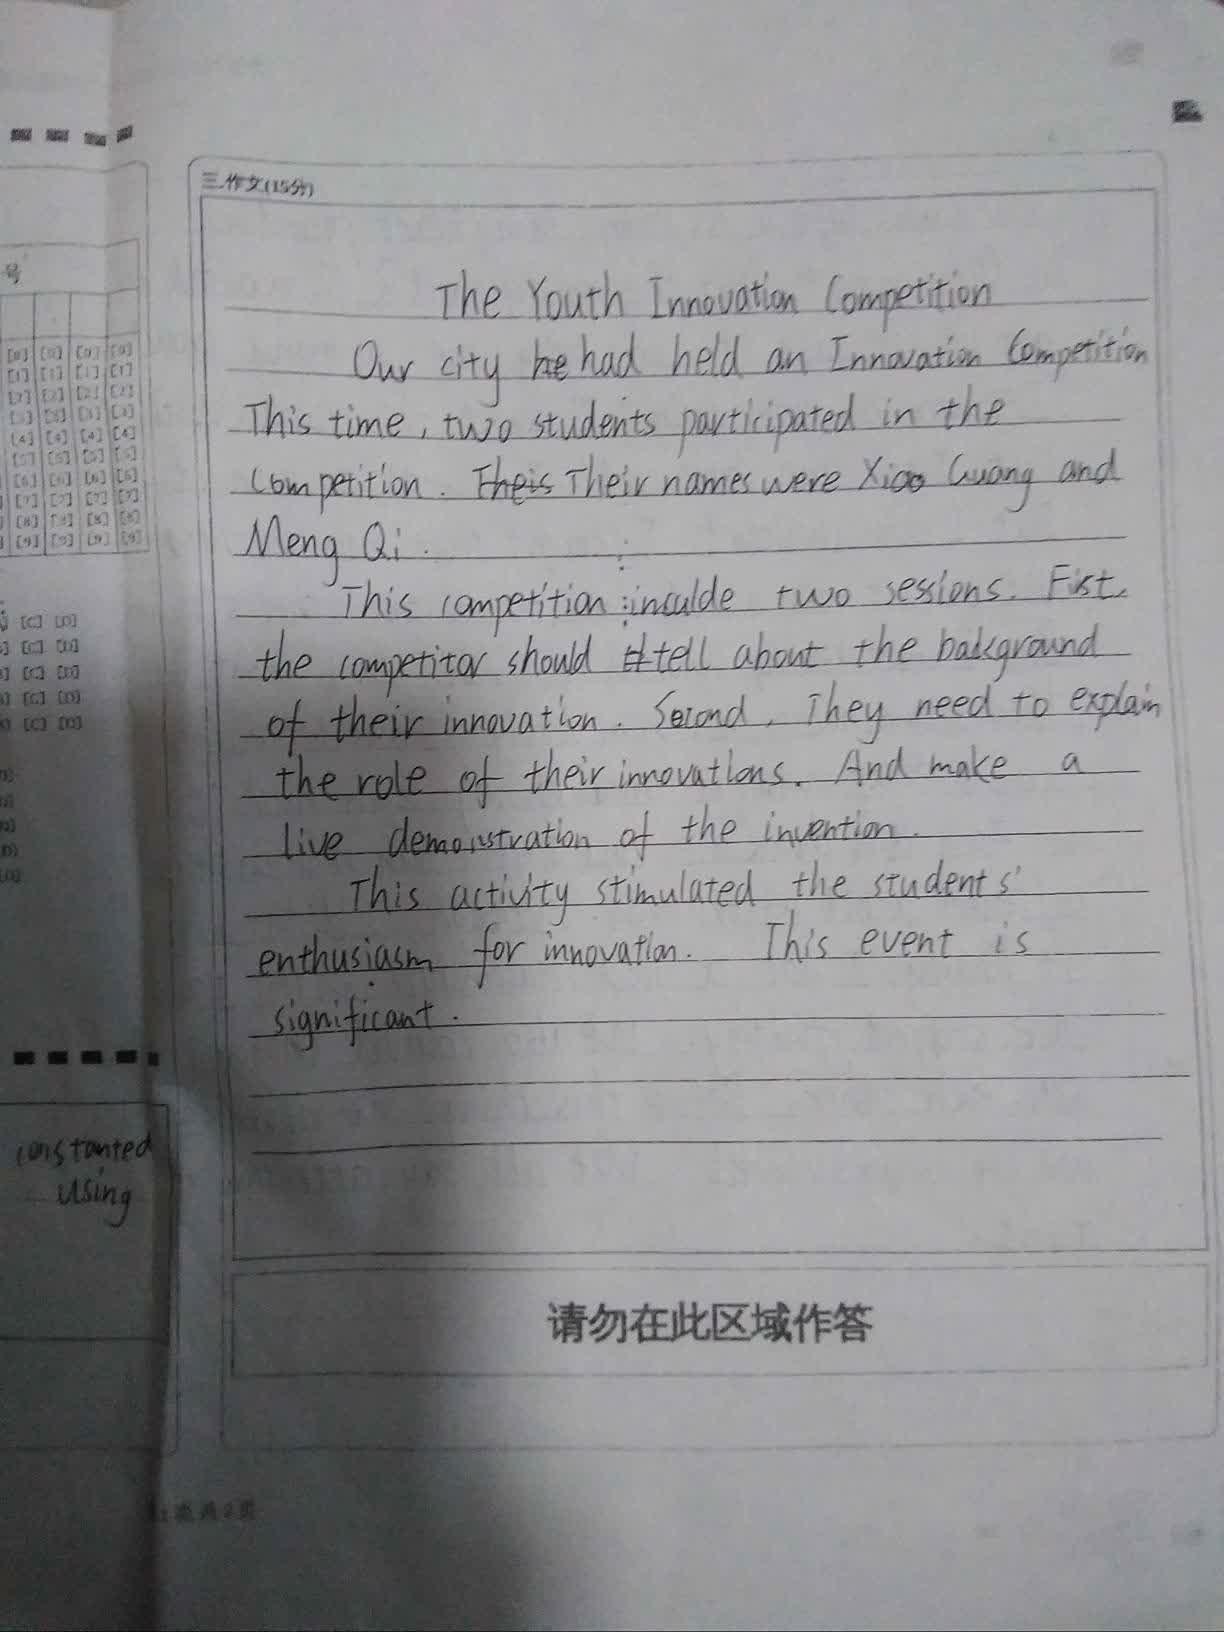 三.作文(15分)
The Youth Innovation Competition
Our city had held an Innovation Competition
This time, two students participated in the
competition. Their names were Xiao Guang and
Meng Qi.
This competition inculde two sessions. Fist,
the competitor should tell about the bakground
of their innovation. Second, They need to explain
the role of their innovations. And make a
live demonstration of the invention.
This activity stimulated the students'
enthusiasm for innovation. This event is
significant.
请勿在此区域作答
号
[0] [0] [0] [0]
[1] [1] [1] [1]
[2] [2] [2] [2]
[3] [3] [3] [3]
[4] [4] [4] [4]
[5] [5] [5] [5]
[6] [6] [6] [6]
[7] [7] [7] [7]
[8] [8] [8] [8]
[9] [9] [9] [9]
[C] [D]
[C] [D]
[C] [D]
[C] [D]
[C] [D]
constanted
using